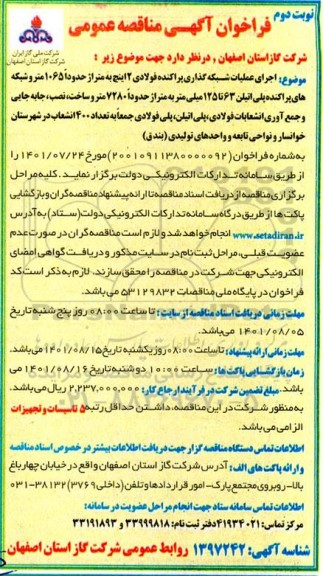 نوبت دوم
فراخوان آگهی مناقصه عمومی
شرکت ملی گاز ایران
شرکت گاز استان اصفهان
شرکت گاز استان اصفهان , درنظر دارد جهت موضوع زیر :
موضوع: اجرای عملیات شبکه گذاری پراکنده فولادی ۲ اینچ به متراژ حدوداً ۱۰۶۵ متر و شبکه
های پراکنده پلی اتیلن ۶۳ تا ۱۲۵ میلی متر به متراژ حدوداً ۷۲۸۰ متر و ساخت، نصب، جابه جایی
و جمع آوری انشعابات فولادی، پلی اتیلن، پلی فولادی جمعاً به تعداد ۴۰۰ انشعاب در شهرستان
خوانسار و نواحی تابعه و واحدهای تولیدی (بندق)
به شماره فراخوان (۲۰۰۱۰۹۱۱۳۸۰۰۰۰۹۲) مورخ ۱۴۰۱/۰۷/۲۴ را
از طریق سامانه تدارکات الکترونیکی دولت برگزار نماید. کلیه مراحل
برگزاری مناقصه از دریافت اسناد مناقصه تا ارائه پیشنهاد مناقصه گران و بازگشایی
پاکت ها از طریق درگاه سامانه تدارکات الکترونیکی دولت (ستاد) به آدرس
www.setadiran.ir انجام خواهد شد و لازم است مناقصه گران در صورت عدم
عضویت قبلی، مراحل ثبت نام در سایت مذکور و دریافت گواهی امضای
الکترونیکی جهت شرکت در مناقصه را محقق سازند. لازم به ذکر است کد
فراخوان در پایگاه ملی مناقصات ۵۳۱۲۹۸۳۲ می باشد.
مهلت زمانی دریافت اسناد مناقصه از سایت : تا ساعت ۰۸:۰۰ روز پنج شنبه تاریخ
۱۴۰۱/۰۸/۰۵ می باشد.
مهلت زمانی ارائه پیشنهاد: تا ساعت ۰۸:۰۰ روز یکشنبه تاریخ ۱۴۰۱/۰۸/۱۵ می باشد.
زمان بازگشایی پاکت ها: ساعت ۱۰:۰۰ دوشنبه تاریخ ۱۴۰۱/۰۸/۱۶ می
باشد. مبلغ تضمین شرکت در فرآیند ارجاع کار: ۲,۲۳۷,۰۰۰,۰۰۰ ریال می باشد.
به منظور شرکت در این مناقصه، داشتن حداقل رتبه ۵ تاسیسات و تجهیزات
الزامی می باشد.
اطلاعات تماس دستگاه مناقصه گزار جهت دریافت اطلاعات بیشتر در خصوص اسناد مناقصه
و ارائه پاکت های الف : آدرس شرکت گاز استان اصفهان واقع در خیابان چهارباغ
بالا- روبروی مجتمع پارک- امور قراردادها و تلفن (داخلی ۳۷۶۹) ۳۸۱۳۲-۰۳۱
اطلاعات تماس سامانه ستاد جهت انجام مراحل عضویت در سامانه:
مرکز تماس: ۰۲۱-۴۱۹۳۴ دفتر ثبت نام: ۳۳۹۹۹۸۱۸ و ۳۳۱۹۱۸۹۳
شناسه آگهی: ۱۳۹۷۲۴۲ روابط عمومی شرکت گاز استان اصفهان